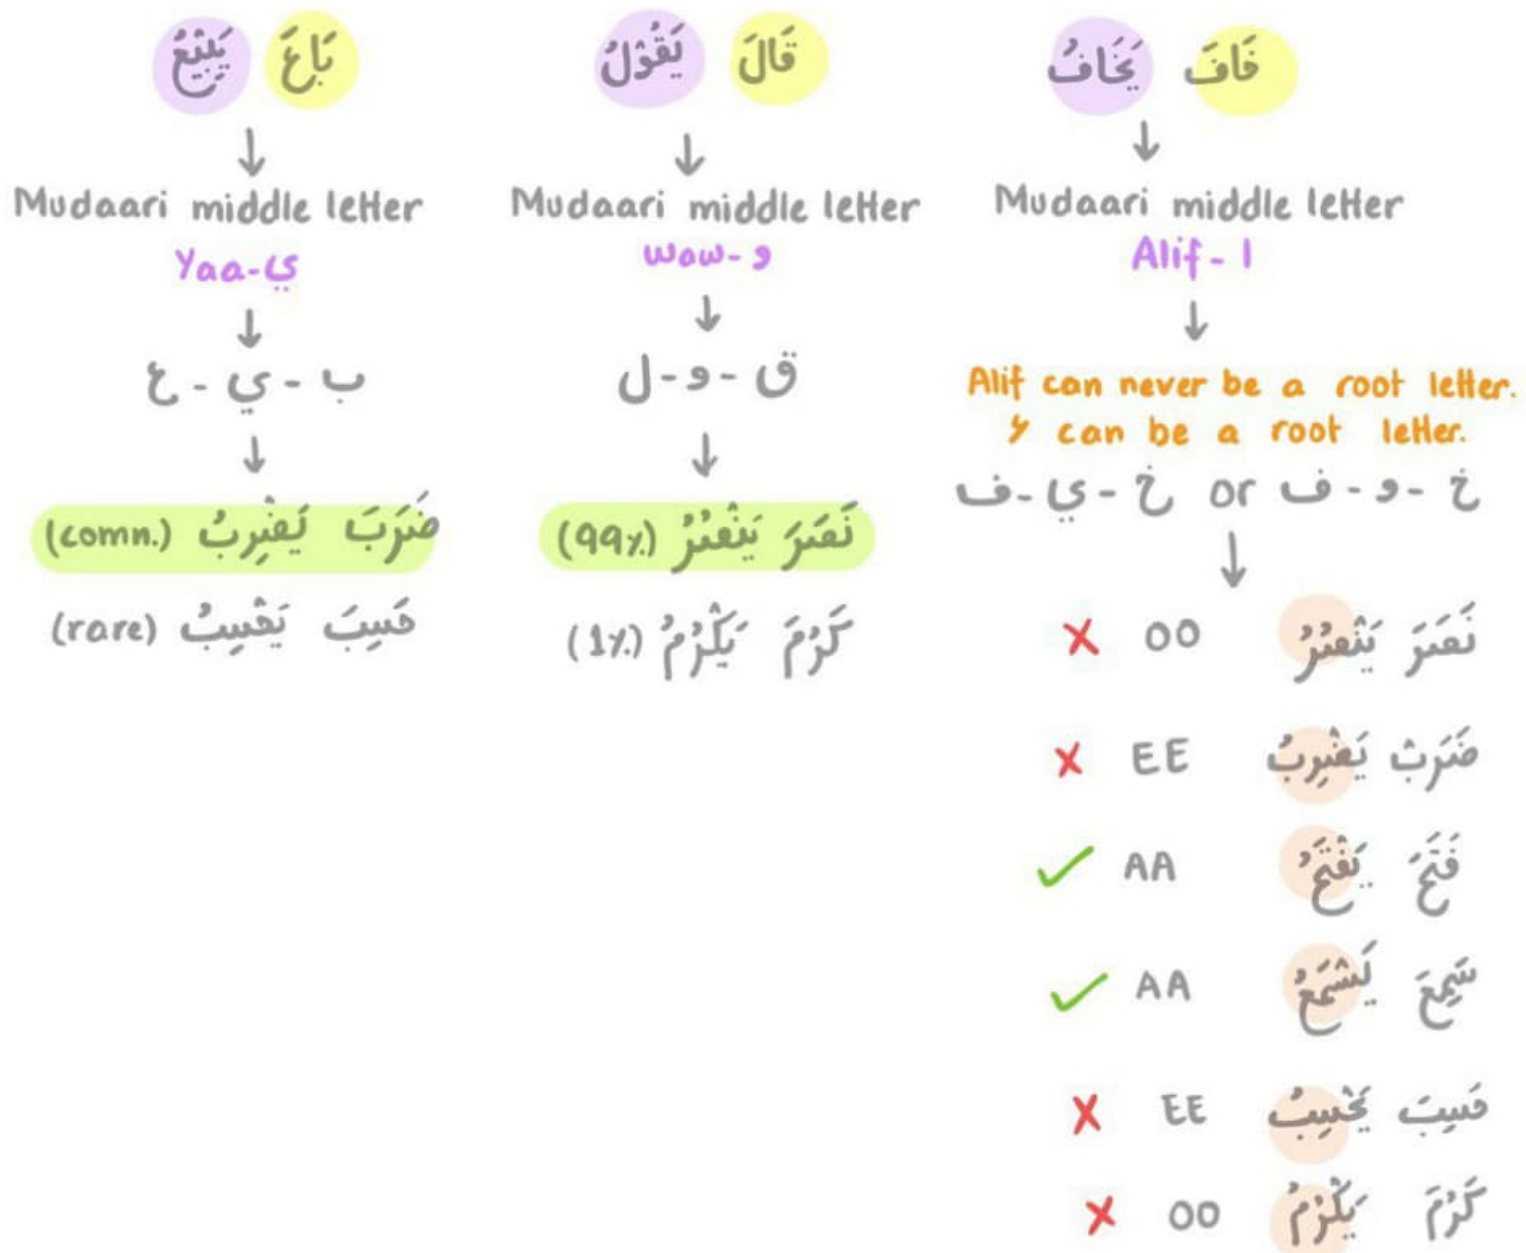 بَاعَ يَبِيْعُ
↓
Mudaari middle letter
Yaa-ي
↓
ب - ي - ع
↓
ضَرَبَ يَضْرِبُ (comn.)
حَسِبَ يَحْسِبُ (rare)
قَالَ يَقُوْلُ
↓
Mudaari middle letter
waw-و
↓
ق - و - ل
↓
نَصَرَ يَنْصُرُ (99%)
كَرُمَ يَكْرُمُ (1%)
خَافَ يَخَافُ
↓
Mudaari middle letter
Alif - ا
↓
Alif can never be a root letter.
ء can be a root letter.
خ - و - ف or خ - ي - ف
↓
نَصَرَ يَنْصُرُ OO ✗
ضَرَبَ يَضْرِبُ EE ✗
فَتَحَ يَفْتَحُ AA ✓
سَمِعَ يَسْمَعُ AA ✓
حَسِبَ يَحْسِبُ EE ✗
كَرُمَ يَكْرُمُ OO ✗